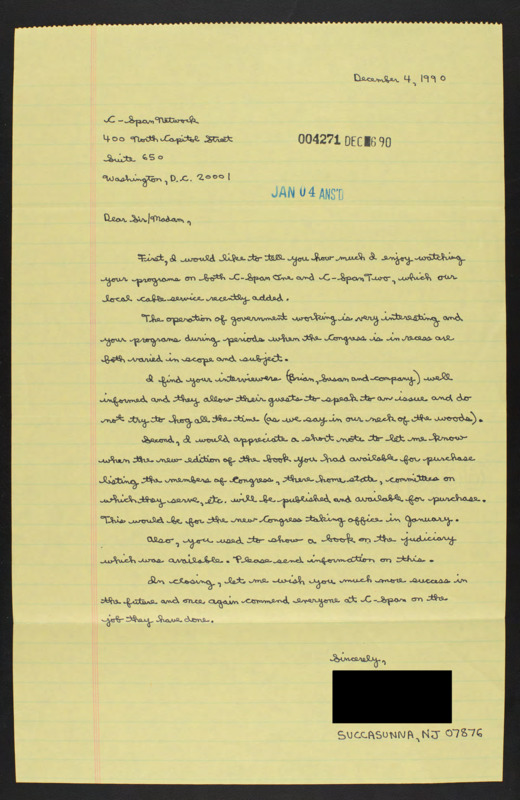 December 4, 1990
C-Span Network
400 North Capitol Street
Suite 650
Washington, D.C. 20001
004271 DEC 6 90
JAN 04 ANS'D
Dear Sir/Madam,
First, I would like to tell you how much I enjoy watching
your programs on both C-Span One and C-Span Two, which our
local cable service recently added.
The operation of government working is very interesting and
your programs during periods when the Congress is in recess are
both varied in scope and subject.
I find your interviewers (Brian, Susan and company) well
informed and they allow their guests to speak to an issue and do
not try to hog all the time (as we say in our neck of the woods).
Second, I would appreciate a short note to let me know
when the new edition of the book you had available for purchase
listing the members of Congress, there home state, committees on
which they serve, etc. will be published and available for purchase.
This would be for the new Congress taking office in January.
Also, you used to show a book on the judiciary
which was available. Please send information on this.
In closing, let me wish you much more success in
the future and once again commend everyone at C-Span on the
job they have done.
Sincerely,
SUCCASUNNA, NJ 07876